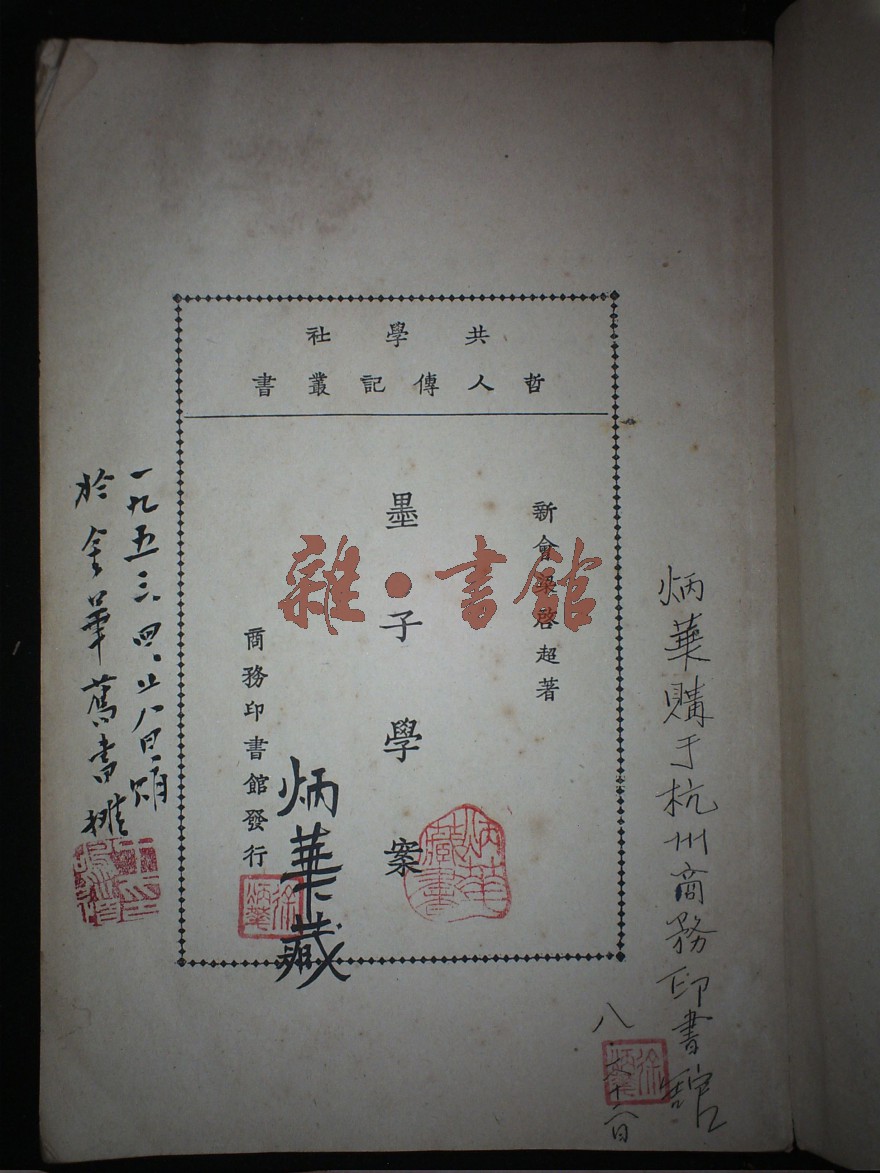 共學社
哲人傳記叢書
新會梁啓超著
墨子學案
商務印書館發行
炳華藏
炳華藏書
徐炳華
炳華購于杭州商務印書館
徐炳華
一九五三.四.廿八日
於金華舊書攤
雜·書館